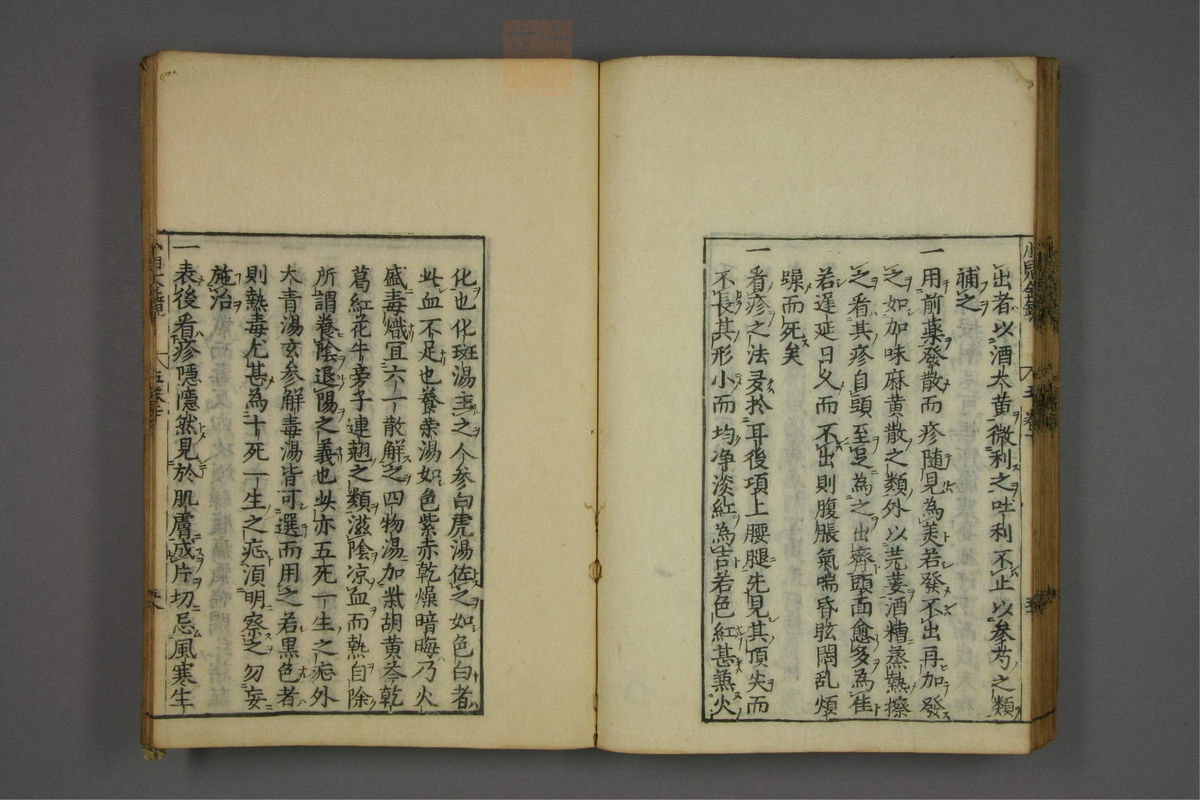 出者以酒大黄微利之吐利不止以参芍之類
補之
一用前藥發散而疹随見為美若發不出再加發
之如加味麻黄散之類外以芫荽酒糟蒸熱擦
之看其疹自頭至足為之出齊頭面愈多為佳
若遅延日久而不出則腹脹氣喘昏眩悶乱煩
躁而死矣
一看疹之法多於耳後項上腰腿先見其頂尖而
不長其形小而均浄淡紅為吉若色紅甚兼火
化也化斑湯主之今参白虎湯佐之如色白者
此血不足也養栄湯如色紫赤乾燥暗晦乃火
盛毒熾冝六一散解之四物湯加柴胡黄芩乾
葛紅花牛旁子連翹之類滋陰凉血而熱自除
所謂養陰退陽之義也此亦五死一生之疟外
大青湯玄参解毒湯皆可選而用之若黒色者
則熱毒尤甚為十死一生之疟湏明察之勿妄
施治
一表後看疹隠隠然見於肌膚成片切忌風寒生